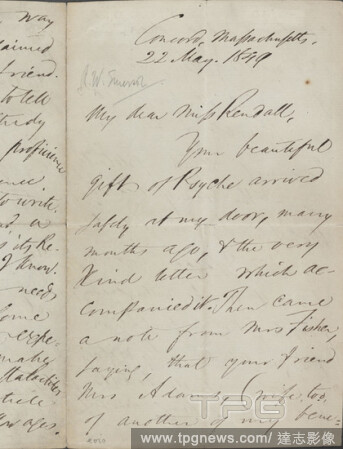 way
claimed
friend.
to tell
proficience
to write
I know.
need,
some
makes
ages.
Concord, Massachusetts.
22 May. 1849
R. W. Emerson
My dear Miss Kendall,
Your beautiful
gift of Psyche arrived
safely at my door, many
months ago, & the very
kind letter which ac-
companied it. Then came
a note from Mrs Fisher,
saying, that your friend
Mrs Adams, (wife too
of another of my bene-
TPG
www.tpgnews.com / 達志影像